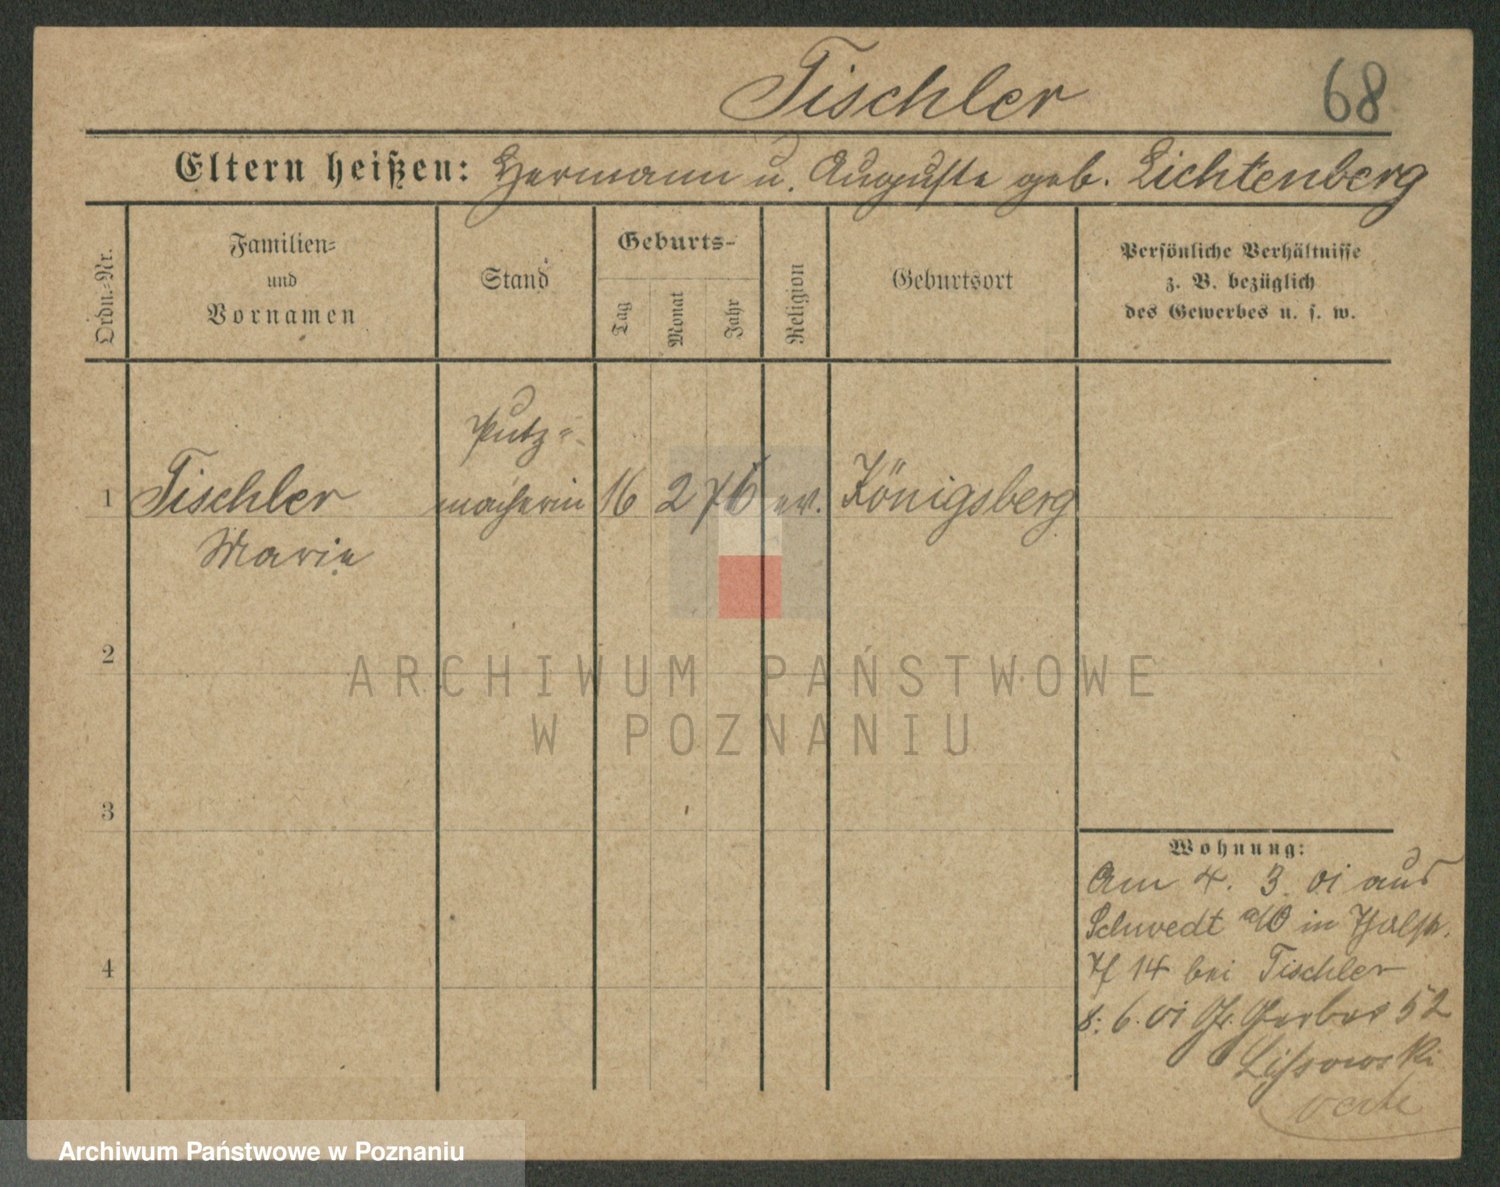 Tischler 68
Eltern heißen: Hermann u. Auguste geb. Lichtenberg
Ordn.-Nr.
Familien-
und
Vornamen
Stand
Geburts-
Tag
Monat
Jahr
Religion
Geburtsort
Persönliche Verhältnisse
z. B. bezüglich
des Gewerbes u. s. w.
Putz-
1 Tischler macherin 16 2 76 ev. Königsberg
Marie
2
3
4
Wohnung:
Am 4. 3. 01 aus
Schwedt a/O in
14 bei Tischler
8. 6. 01 Gr. Gerber 52
Lissowski
verte
ARCHIWUM PAŃSTWOWE
W POZNANIU
Archiwum Państwowe w Poznaniu